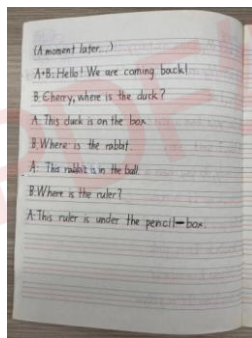 (A moment later...)
A+B: Hello! We are coming back!
B: Cherry, where is the duck?
A: This duck is on the box.
B: Where is the rabbit
A: This rabbit is in the ball.
B: Where is the ruler?
A: This ruler is under the pencil-box.